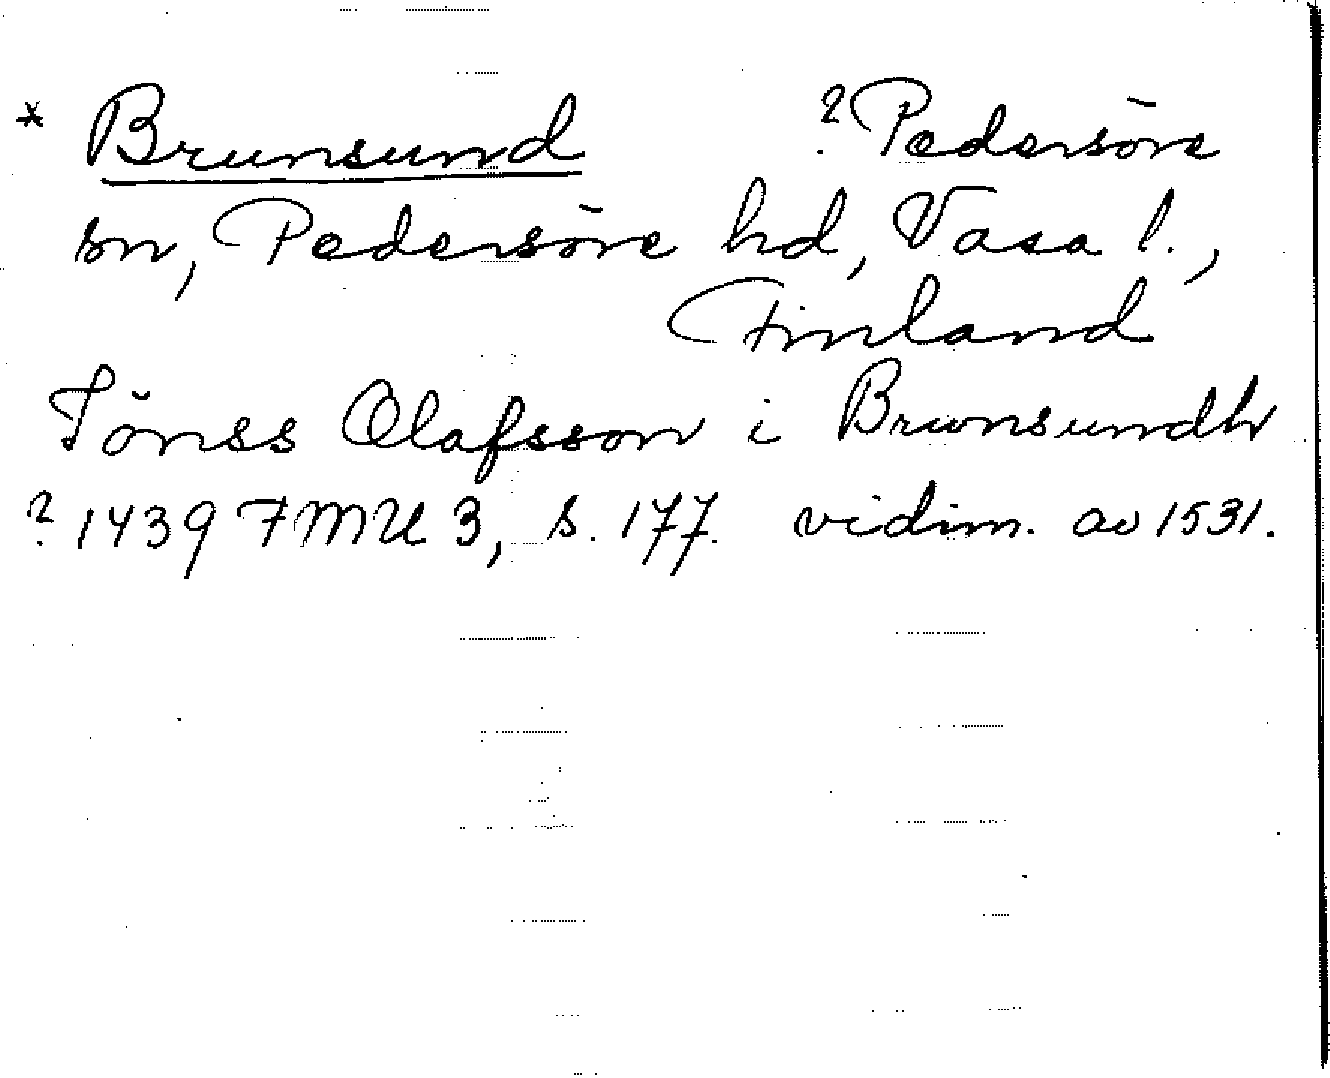 * Brunsund ? Pedersöre
sn, Pedersöre hd, Vasa l.,
Finland
Jönss Olafsson i Brunsundh
? 1439 FMU 3, s. 177. vidim. av 1531.